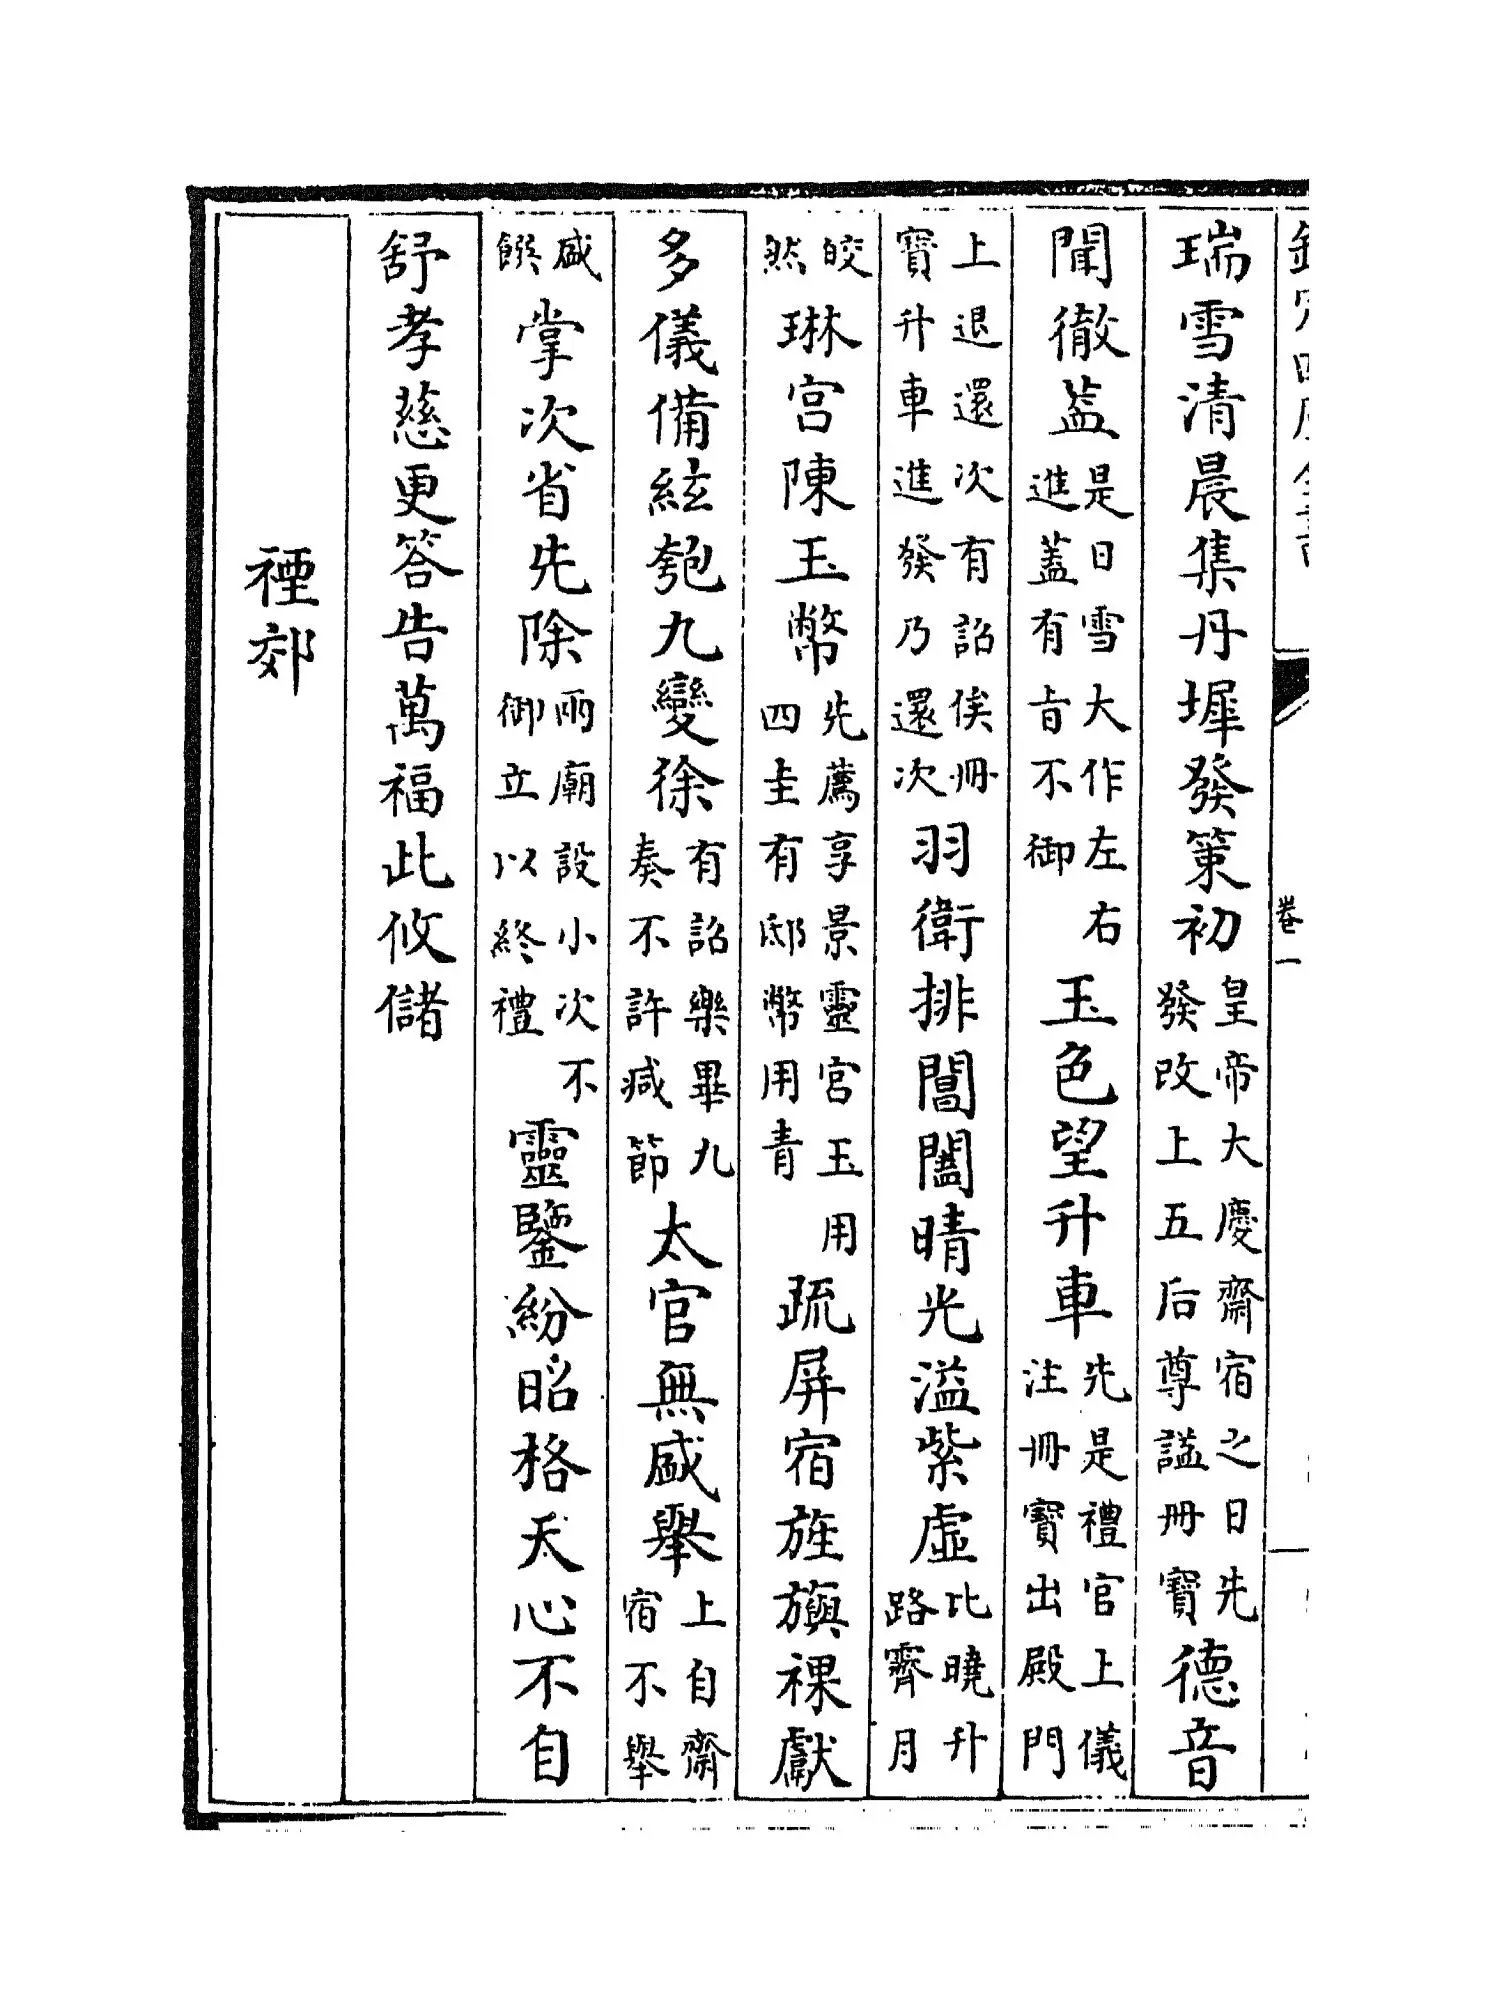 卷一
瑞雪清晨集丹墀發策初皇帝大慶齋宿之日先發改上五后尊諡冊寶德音
聞徹葢是日雪大作左右進蓋有旨不御玉色望升車先是禮官上儀注冊寶出殿門
上退還次有詔俟冊寶升車進發乃還次羽衛排閶闔晴光溢紫虛比曉升路霽月
皎然琳宫陳玉幣先薦享景靈宮玉用四圭有邸幣用青疏屏宿旌旟祼獻
多儀備絃匏九變徐有詔樂畢九奏不許減節太官無盛舉上自齋宿不舉
盛饌掌次省先除兩廟設小次不御立以終禮靈鑒紛昭格天心不自
舒孝慈更答告萬福此攸儲
禋郊